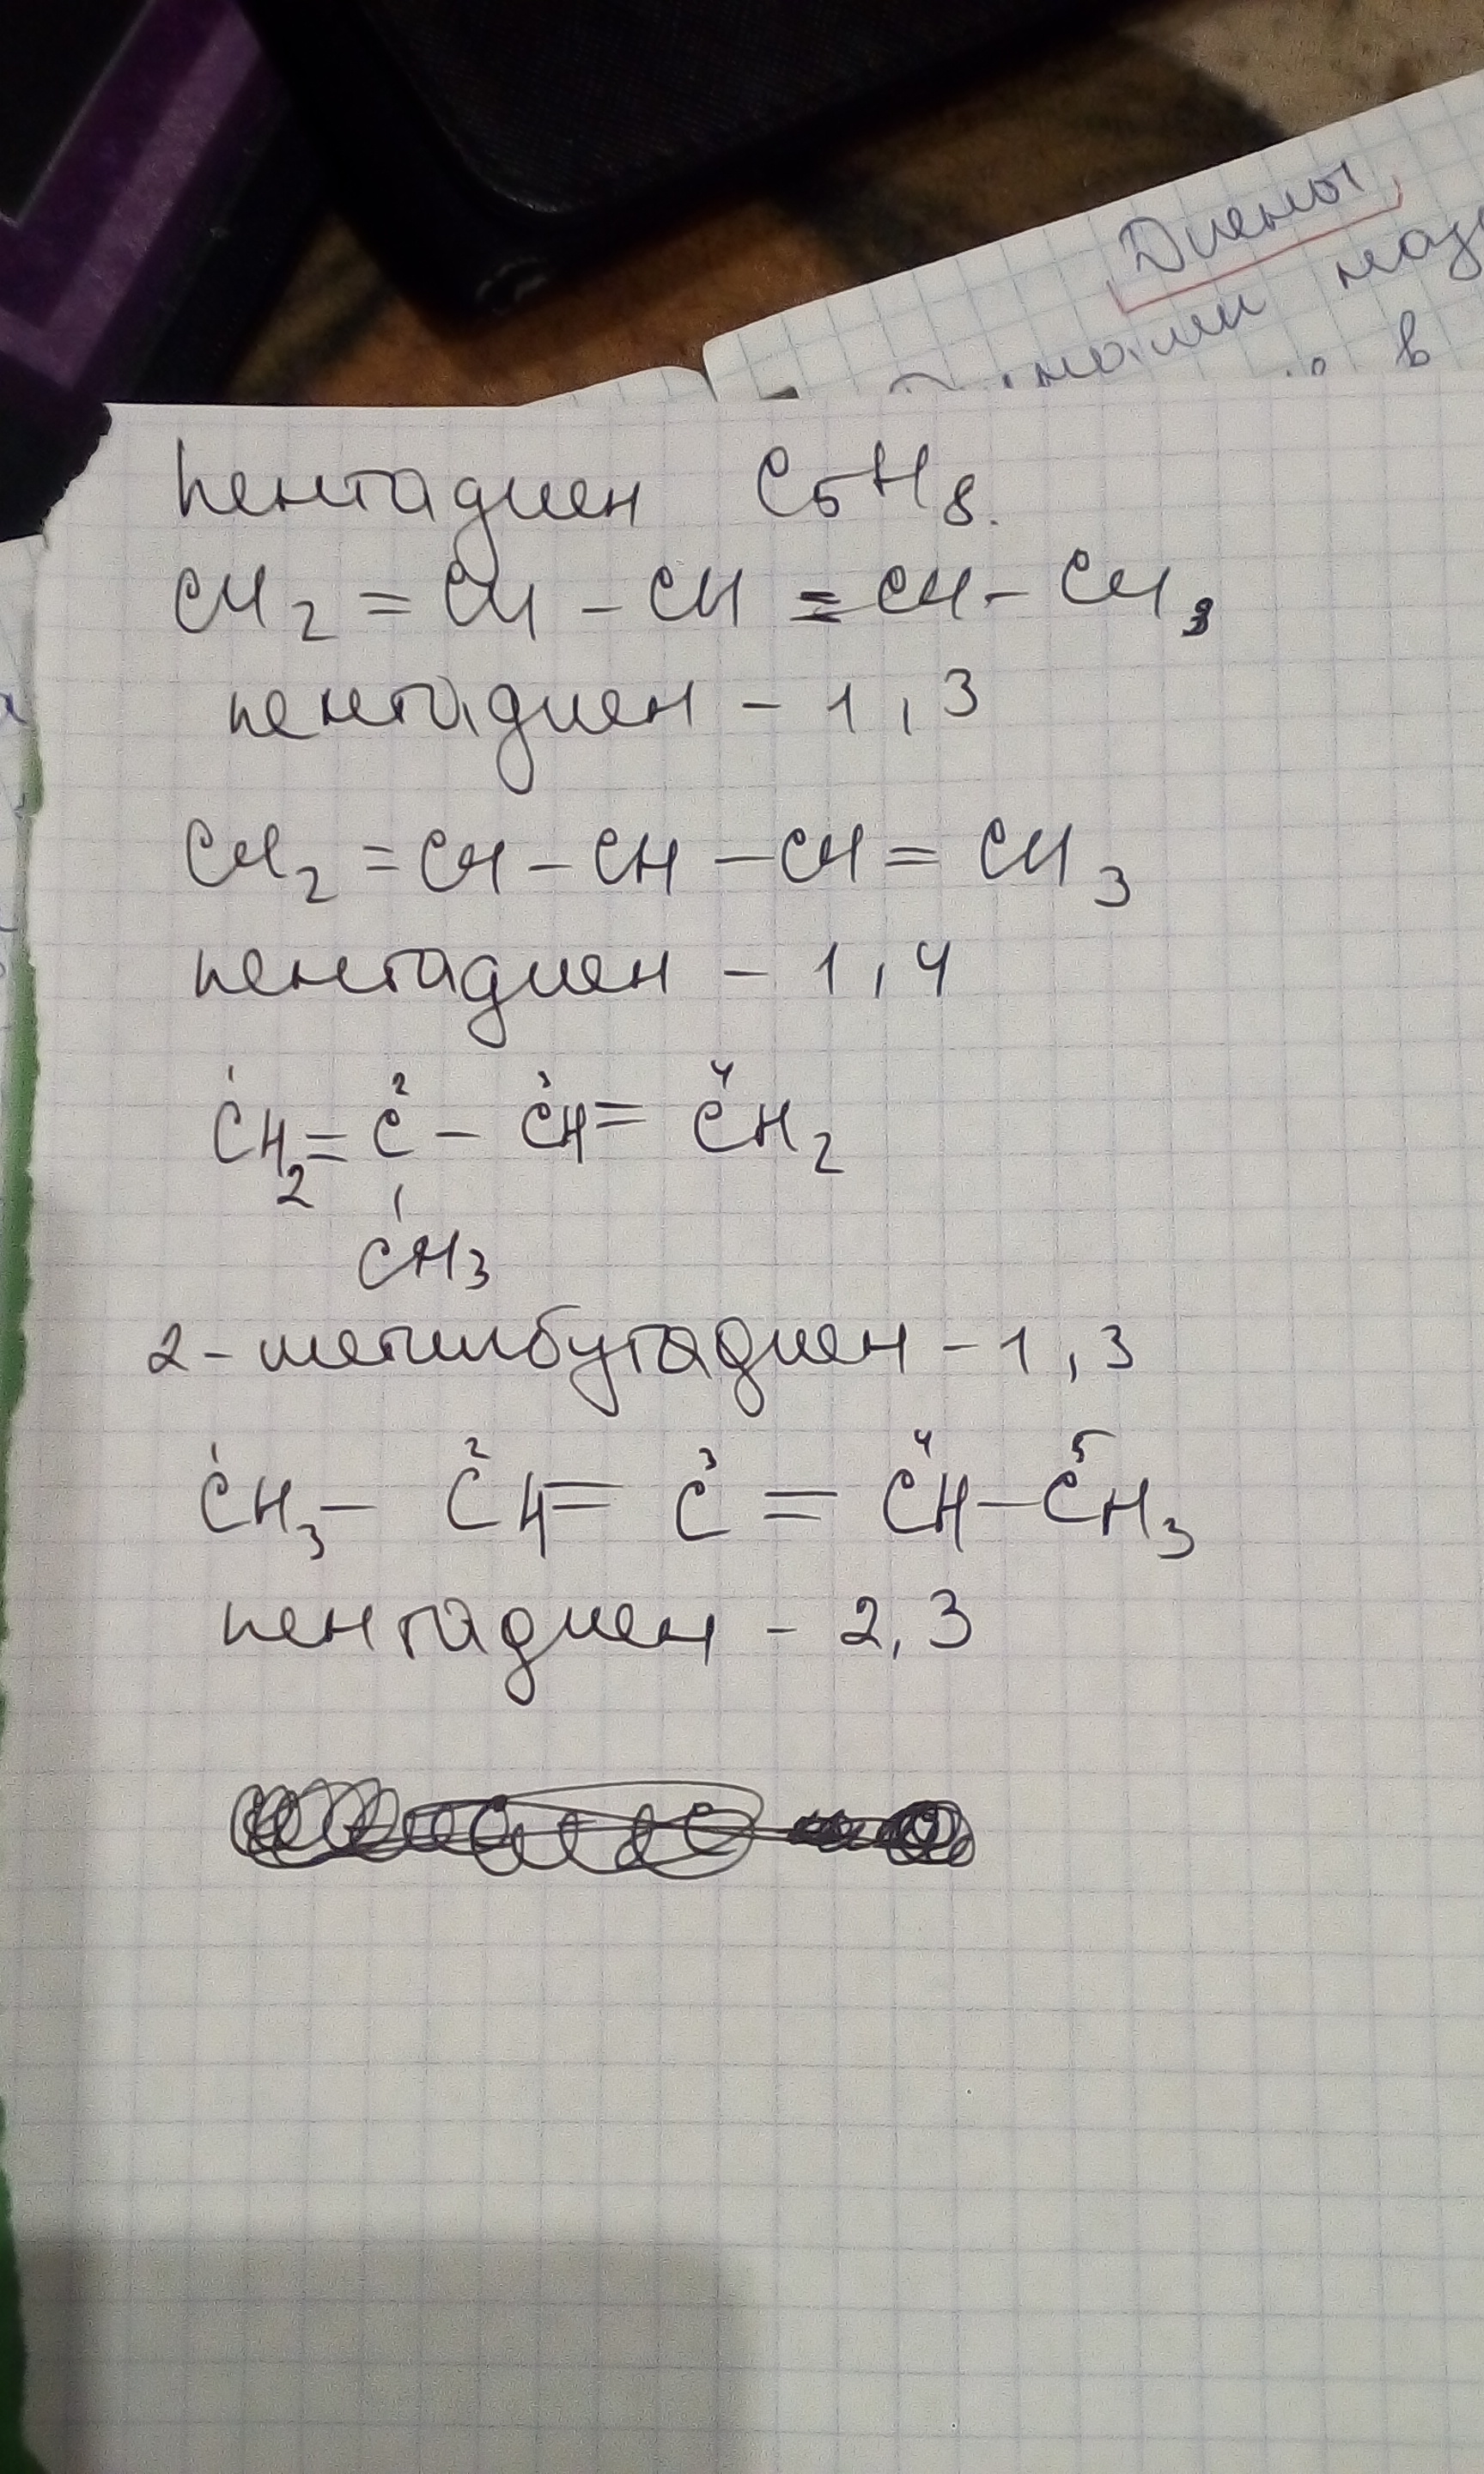 Диены
пентадиен C₅H₈.
CH₂ = CH – CH = CH – CH₃
пентадиен – 1,3
CH₂ = CH – CH – CH = CH₃
пентадиен – 1,4
1 2 3 4
CH₂ = C – CH = CH₂
CH₃
2-метилбутадиен – 1,3
1 2 3 4 5
CH₃ – CH = C = CH – CH₃
пентадиен – 2,3